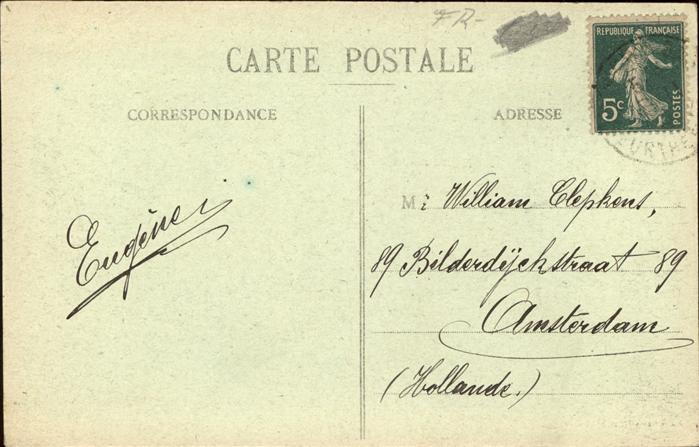 FR-
CARTE POSTALE
CORRESPONDANCE
ADRESSE
REPUBLIQUE FRANÇAISE
5c
POSTES
Eugène
M: William Clepkens,
89 Bilderdijckstraat 89
Amsterdam
(Hollande.)